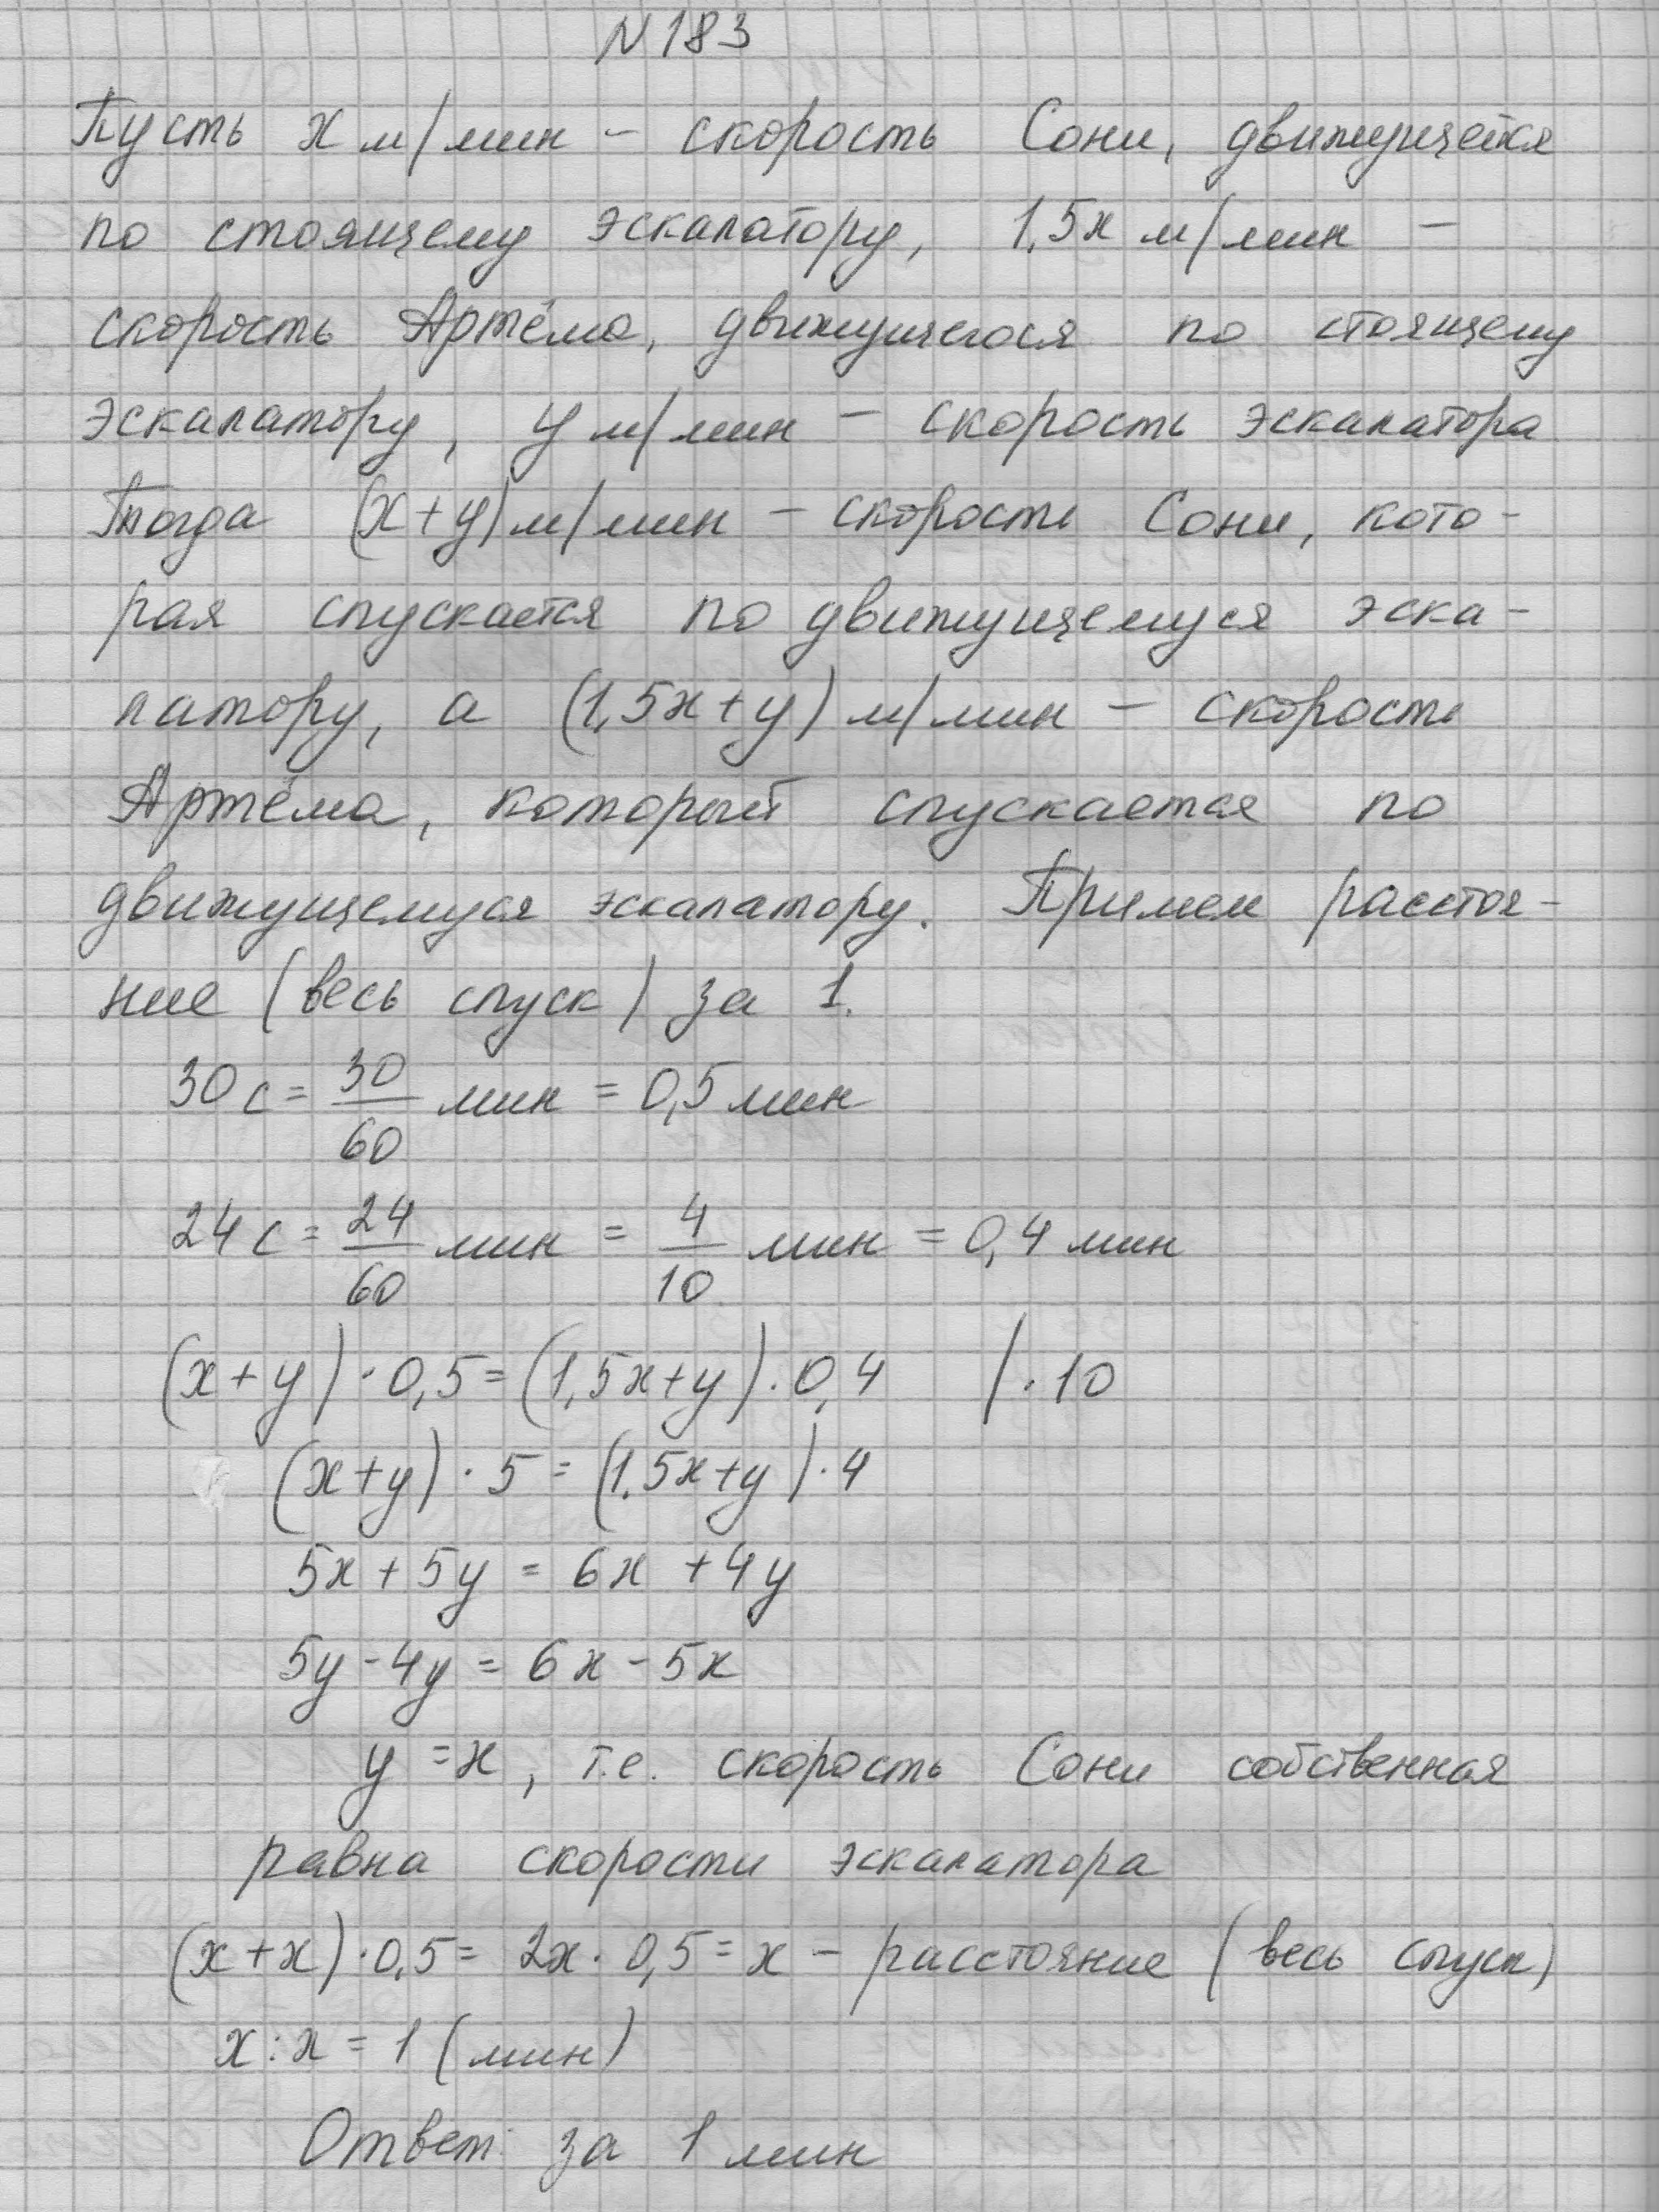 N 183
Пусть x м/мин – скорость Сони, движущейся
по стоящему эскалатору, 1,5x м/мин –
скорость Артёма, движущегося по стоящему
эскалатору, y м/мин – скорость эскалатора
Тогда (x+y) м/мин – скорость Сони, кото-
рая спускается по движущемуся эска-
латору, а (1,5x+y) м/мин – скорость
Артёма, который спускается по
движущемуся эскалатору. Примем расстоя-
ние (весь спуск) за 1.
30 с = 30/60 мин = 0,5 мин
24 с = 24/60 мин = 4/10 мин = 0,4 мин
(x+y)·0,5=(1,5x+y)·0,4 |·10
(x+y)·5=(1,5x+y)·4
5x+5y=6x+4y
5y-4y=6x-5x
y=x, т.е. скорость Сони собственная
равна скорости эскалатора
(x+x)·0,5= 2x·0,5=x – расстояние (весь спуск)
x:x=1 (мин)
Ответ: за 1 мин